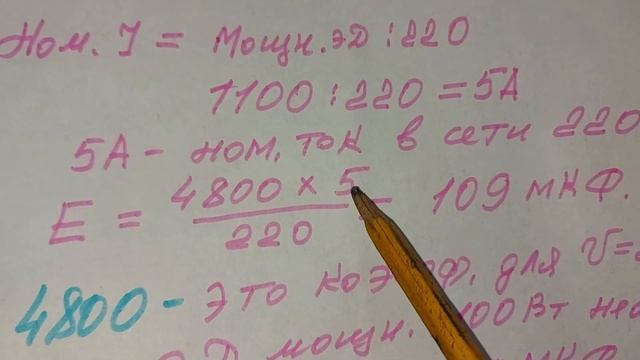 Ном. I = Мощн. ЭД : 220
1100 : 220 = 5А
5А - ном. ток в сети 220
E = 4800 × 5 / 220 = 109 мкФ.
4800 - это коэф. для
мощн. 100Вт